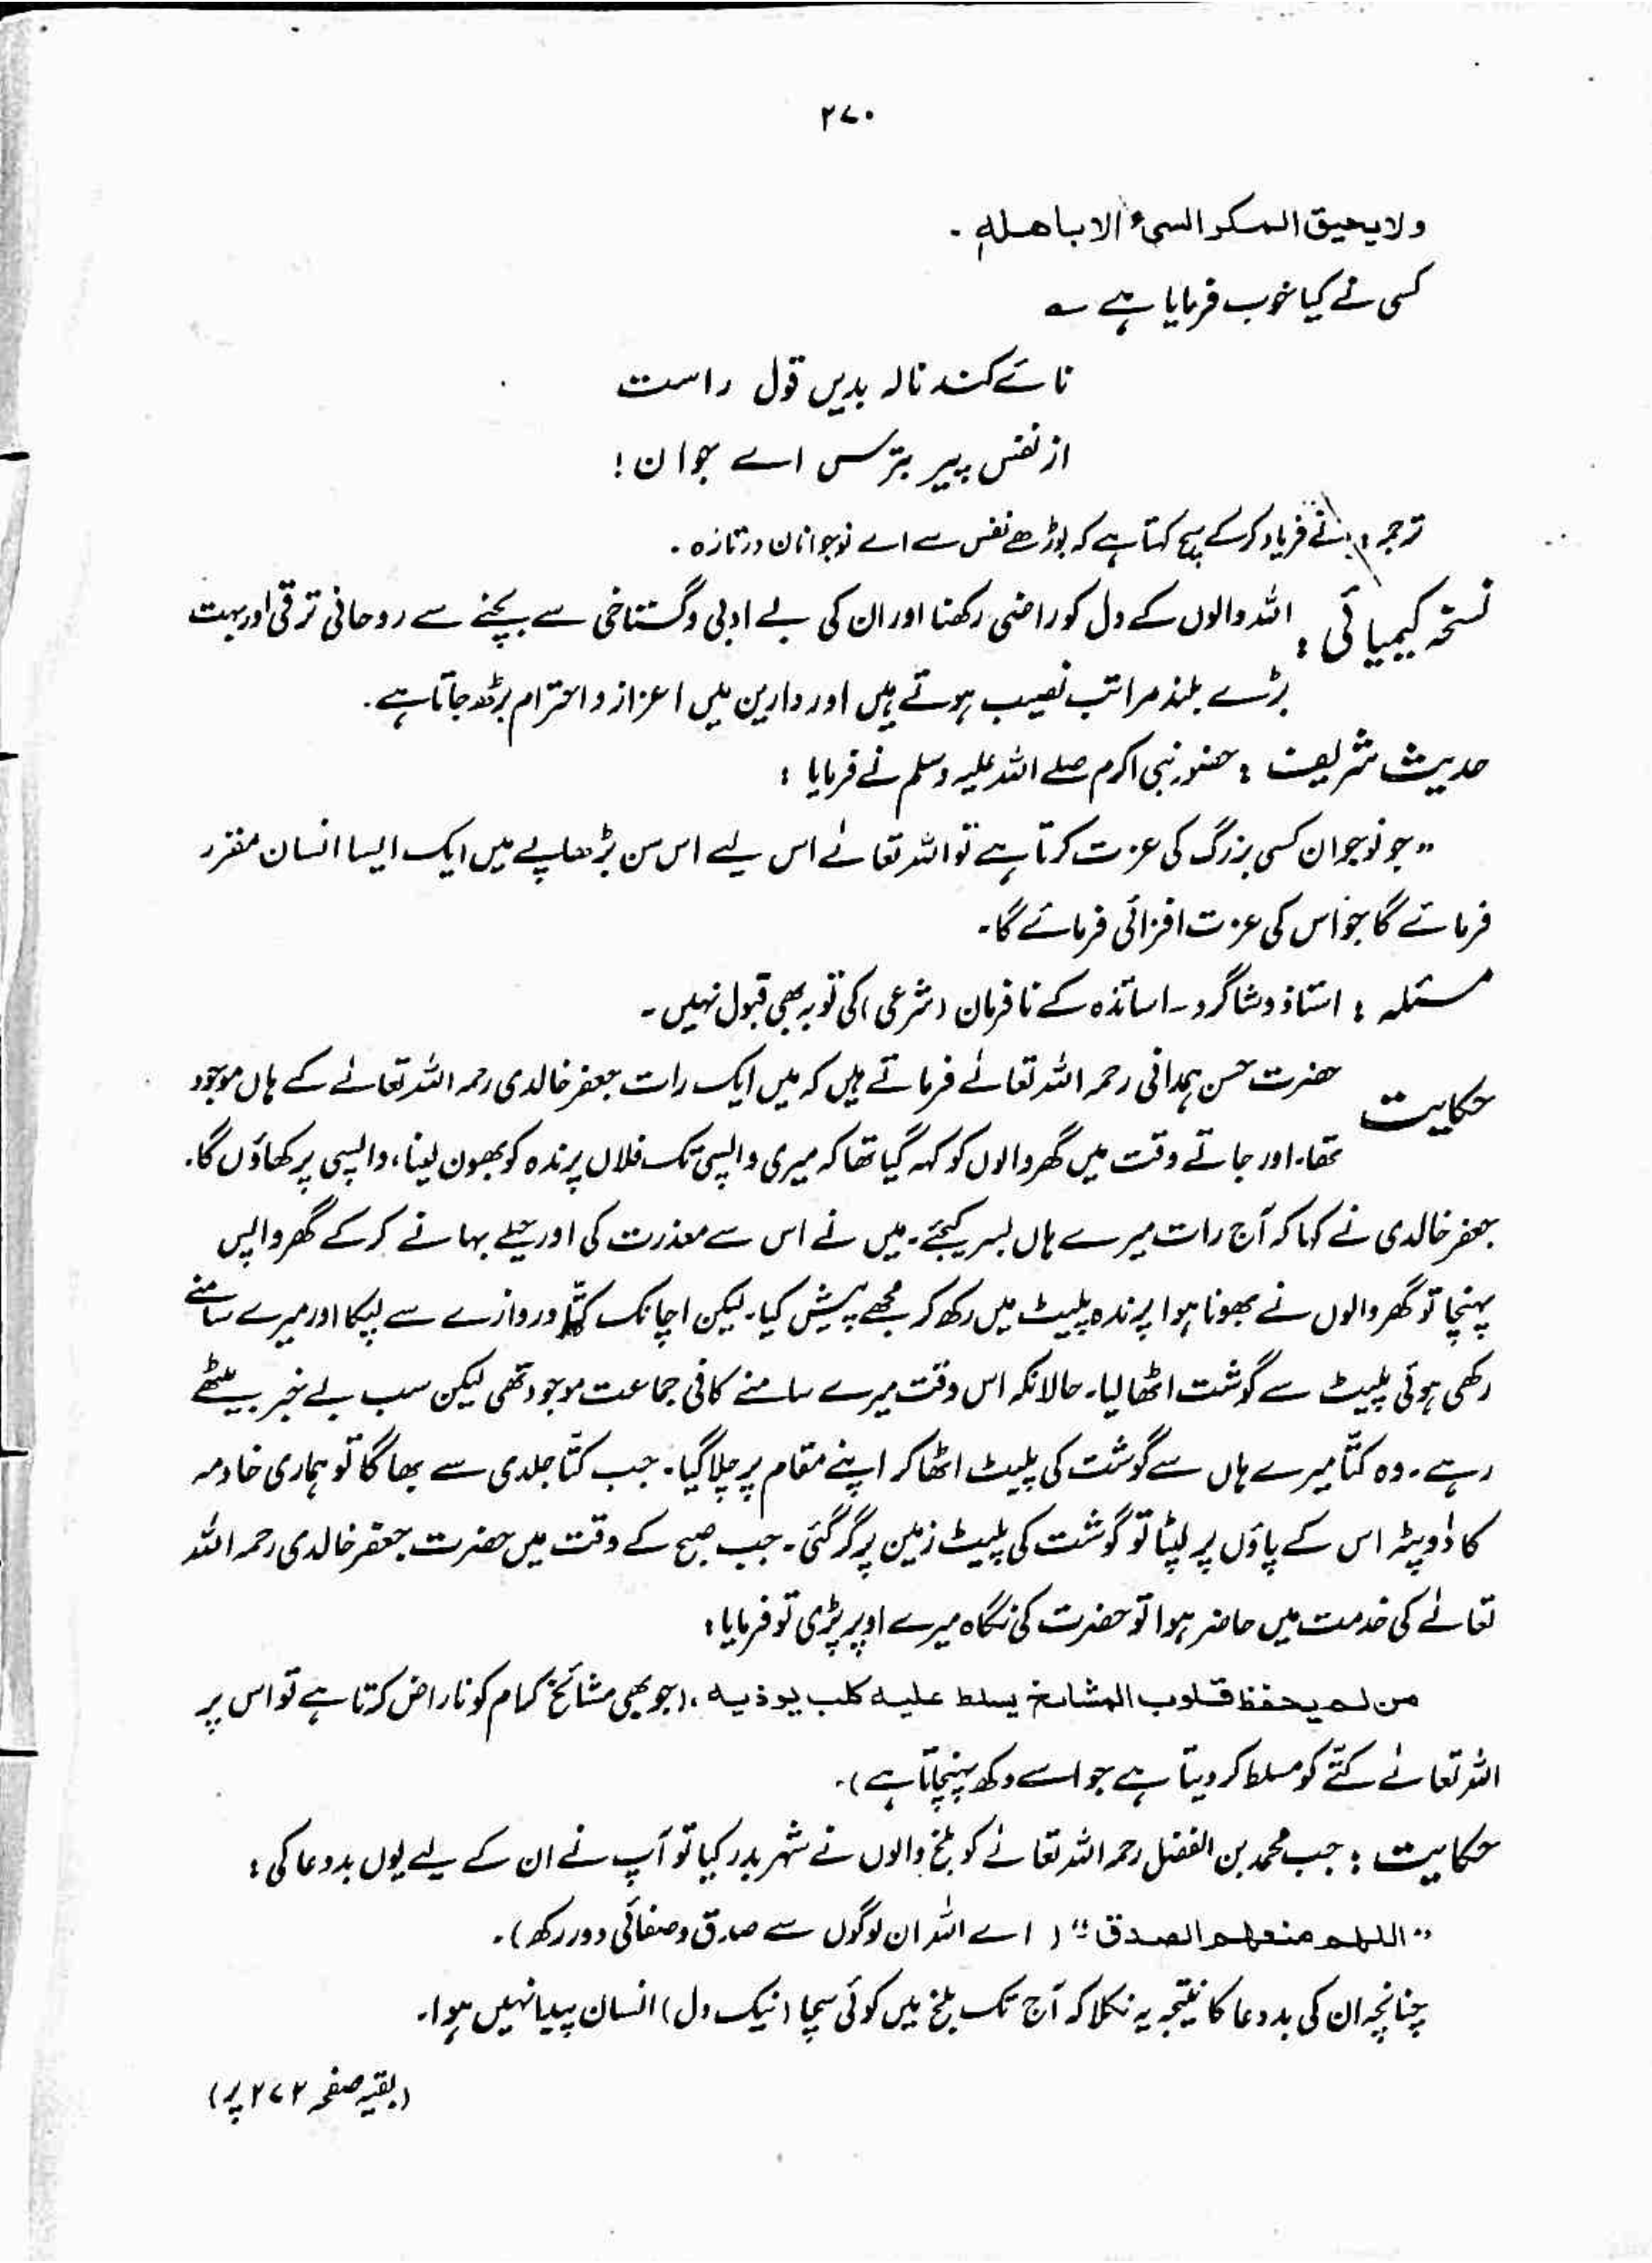 ۲۷۰
ولا یحیق المکر السیء الا باھلہٖ ۔
کسی نے کیا خوب فرمایا ہے ؎
نائے کند نالہ بدیں قول راست
از نفس پیر بترس اے جوان !
ترجمہ : نے فریاد کرکے سچ کہتا ہے کہ بوڑھے نفس سے اے نوجوانان ورتازہ ۔
نسخہ کیمیائی : اللہ والوں کے دل کو راضی رکھنا اور ان کی بے ادبی و گستاخی سے بچنے سے روحانی ترقی اور بہت
بڑے بلند مراتب نصیب ہوتے ہیں اور دارین میں اعزاز و احترام بڑھ جاتا ہے ۔
حدیث شریف : حضور نبی اکرم صلے اللہ علیہ وسلم نے فرمایا :
" جو نوجوان کسی بزرگ کی عزت کرتا ہے تو اللہ تعالٰے اس لیے اس سن بڑھاپے میں ایک ایسا انسان مقرر
فرمائے گا جو اس کی عزت افزائی فرمائے گا ۔
مسئلہ : استاذ و شاگرد ۔ اساتذہ کے نافرمان (شرعی) کی توبہ بھی قبول نہیں ۔
حکایت حضرت حسن ہمدانی رحمہ اللہ تعالٰے فرماتے ہیں کہ میں ایک رات جعفر خالدی رحمہ اللہ تعالٰے کے ہاں موجود
تھا ۔ اور جاتے وقت میں گھر والوں کو کہہ گیا تھا کہ میری واپسی تک فلاں پرندہ کو بھون لینا ، واپسی پر کھاؤں گا ۔
جعفر خالدی نے کہا کہ آج رات میرے ہاں بسر کیجئے ۔ میں نے اس سے معذرت کی اور حیلے بہانے کر کے گھر واپس
پہنچا تو گھر والوں نے بھونا ہوا پرندہ پلیٹ میں رکھ کر مجھے پیش کیا ۔ لیکن اچانک کتّا دروازے سے لپکا اور میرے سامنے
رکھی ہوئی پلیٹ سے گوشت اٹھا لیا ۔ حالانکہ اس وقت میرے سامنے کافی جماعت موجود تھی لیکن سب بے خبر بیٹھے
رہے ۔ وہ کتّا میرے ہاں سے گوشت کی پلیٹ اٹھا کر اپنے مقام پر چلا گیا ۔ جب کتّا جلدی سے بھاگا تو ہماری خادمہ
کا دُوپٹہ اس کے پاؤں پر لپٹا تو گوشت کی پلیٹ زمین پر گر گئی ۔ جب صبح کے وقت میں حضرت جعفر خالدی رحمہ اللہ
تعالٰے کی خدمت میں حاضر ہوا تو حضرت کی نگاہ میرے اوپر پڑی تو فرمایا :
من لم یحفظ قلوب المشائخ یسلط علیہ کلب یوذیہ ، (جو بھی مشائخ کرام کو ناراض کرتا ہے تو اس پر
اللہ تعالٰے کتّے کو مسلط کر دیتا ہے جو اسے دکھ پہنچاتا ہے) ۔
حکایت : جب محمد بن الفضل رحمہ اللہ تعالٰے کو بلخ والوں نے شہر بدر کیا تو آپ نے ان کے لیے یوں بددعا کی :
" اللھم منعھم الصدق " ( اے اللہ ان لوگوں سے صدق و صفائی دور رکھ) ۔
چنانچہ ان کی بددعا کا نتیجہ یہ نکلا کہ آج تک بلخ میں کوئی سچا (نیک دل) انسان پیدا نہیں ہوا ۔
(بقیہ صفحہ ۲۷۲ پر)